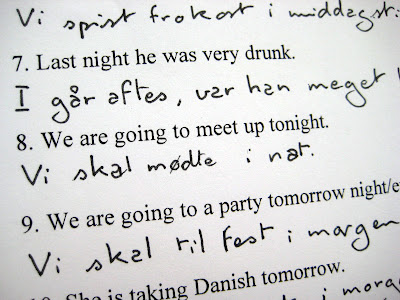 Vi spist frokost i middagst.
7. Last night he was very drunk.
I går aftes, var han meget
8. We are going to meet up tonight.
Vi skal mødte i nat.
9. We are going to a party tomorrow night/e
Vi skal til fest i morgen
10. She is taking Danish tomorrow.
i morg